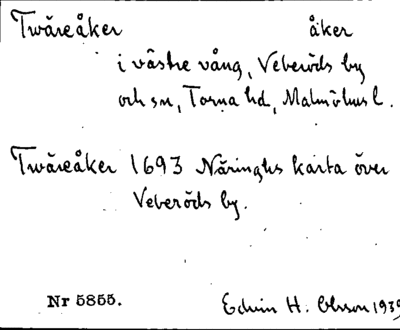 Twäreåker åker
i västre vång, Veberöds by
och sn, Torna hd, Malmöhus l.
Twäreåker 1693 Näringhs karta över
Veberöds by.
Nr 5855. Edvin H. Olsson 1939